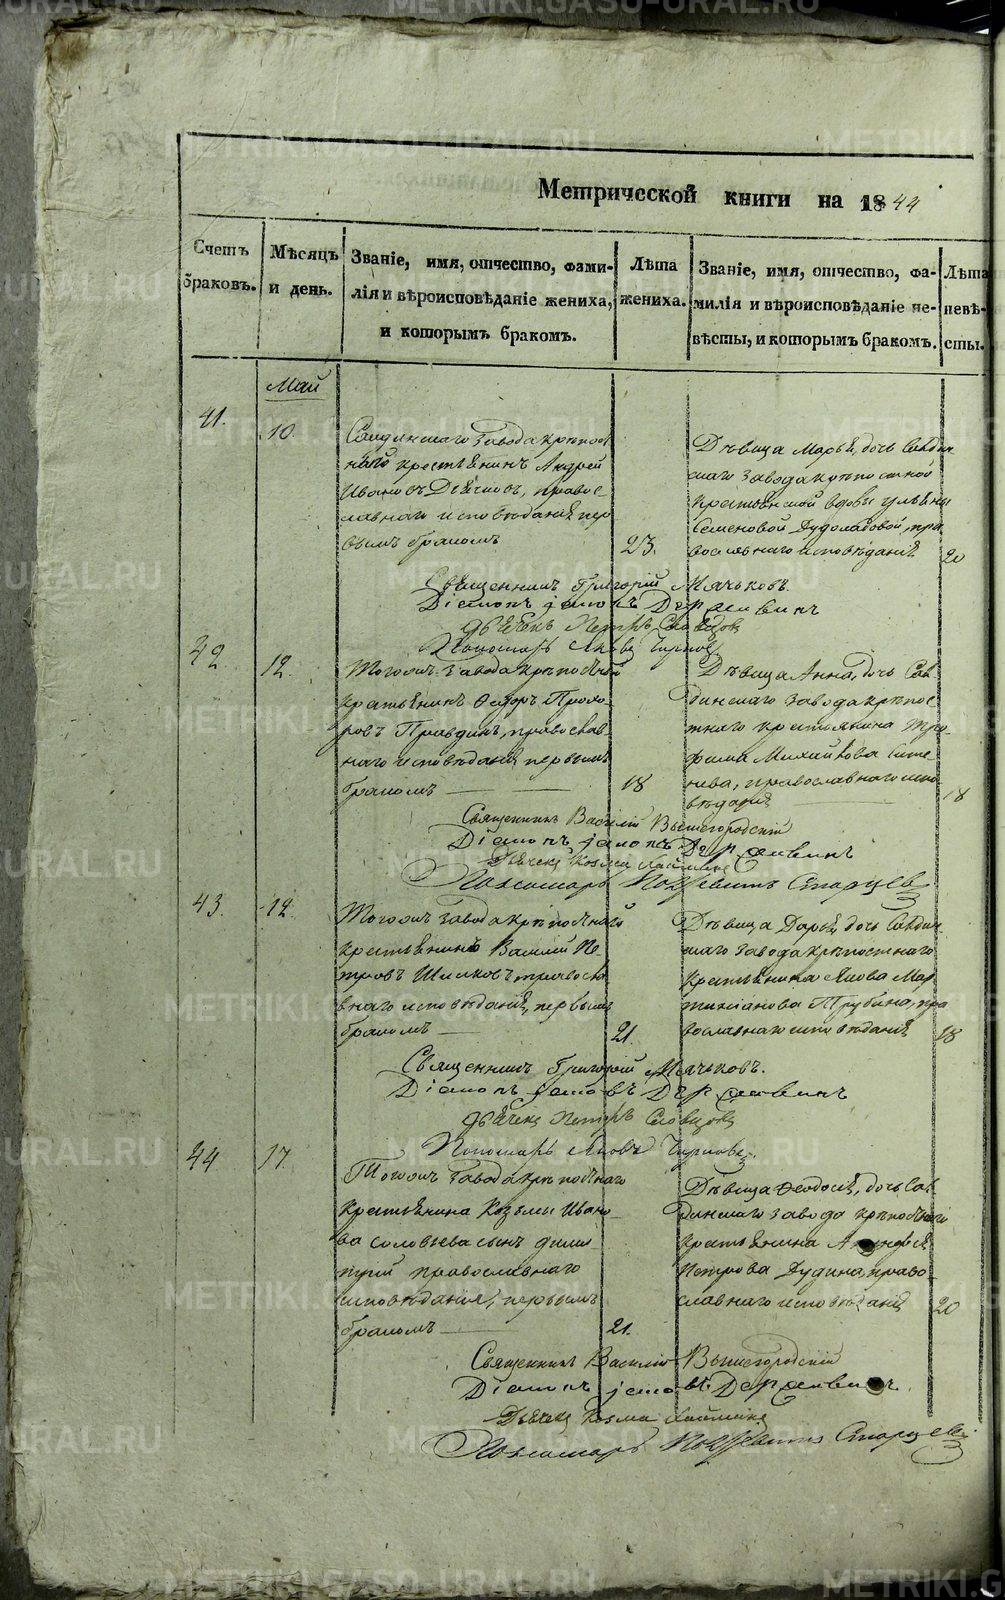 Метрической книги на 1844
Счетъ браковъ.
Мѣсяцъ и день.
Званіе, имя, отчество, фами-
лія и вѣроисповѣданіе жениха,
и которымъ бракомъ.
Лѣта
жениха.
Званіе, имя, отчество, фа-
милія и вѣроисповѣданіе не-
вѣсты, и которымъ бракомъ.
Лѣта
невѣ-
сты.
Май
41.
10.
Салдинскаго завода крѣпост
наго крестьянинъ Андрей
Ивановъ правос
лавнаго исповѣданія пер
вымъ бракомъ
23.
Дѣвица Марья, дочь Салдин
скаго завода крѣпостной
крестьянской вдовы Ульяны
Семеновой пра
вославнаго исповѣданія
20
Священникъ Григорій Мячковъ.
Діаконъ Іаковъ Державинъ
Дьячекъ Петръ Словцовъ
Пономарь Яковъ
42
12.
Тогожъ завода крѣпостной
крестьянинъ Ѳедоръ Прохо-
ровъ Правдинъ, православ
наго исповѣданія первымъ
бракомъ
18
Дѣвица Анна, дочь Сал
динскаго завода крѣпос
тнаго крестьянина Тро
фима Михайлова
православнаго испо
вѣданія
18
Священникъ Василій Вышегородскій
Діаконъ Іаковъ Державинъ
Дьячекъ Козма
Пономарь Старцевъ
43.
12.
Тогожъ завода крѣпостнаго
крестьянинъ Василій Пе
тровъ правосла
внаго исповѣданія, первымъ
бракомъ
21.
Дѣвица Дарья, дочь Салдин
скаго завода крѣпостнаго
крестьянина Якова Мар
тиніанова Трубина, пра
вославнаго исповѣданія
18
Священникъ Григорій Мячковъ.
Діаконъ Іаковъ Державинъ
Дьячекъ Петръ Словцовъ
Пономарь Яковъ
44
17.
Тогожъ завода крѣпостнаго
крестьянина Козьмы Ивано
ва Соловьева сынъ Дими
трій православнаго
исповѣданія, первымъ
бракомъ
21.
Дѣвица Ѳеодосія, дочь Сал
динскаго завода крѣпостнаго
крестьянина
Петрова Дудина, право
славнаго исповѣданія
20
Священникъ Василій Вышегородскій
Діаконъ Іаковъ Державинъ.
Дьячекъ Козма
Пономарь Старцевъ
METRIKI.GASO-URAL.RU